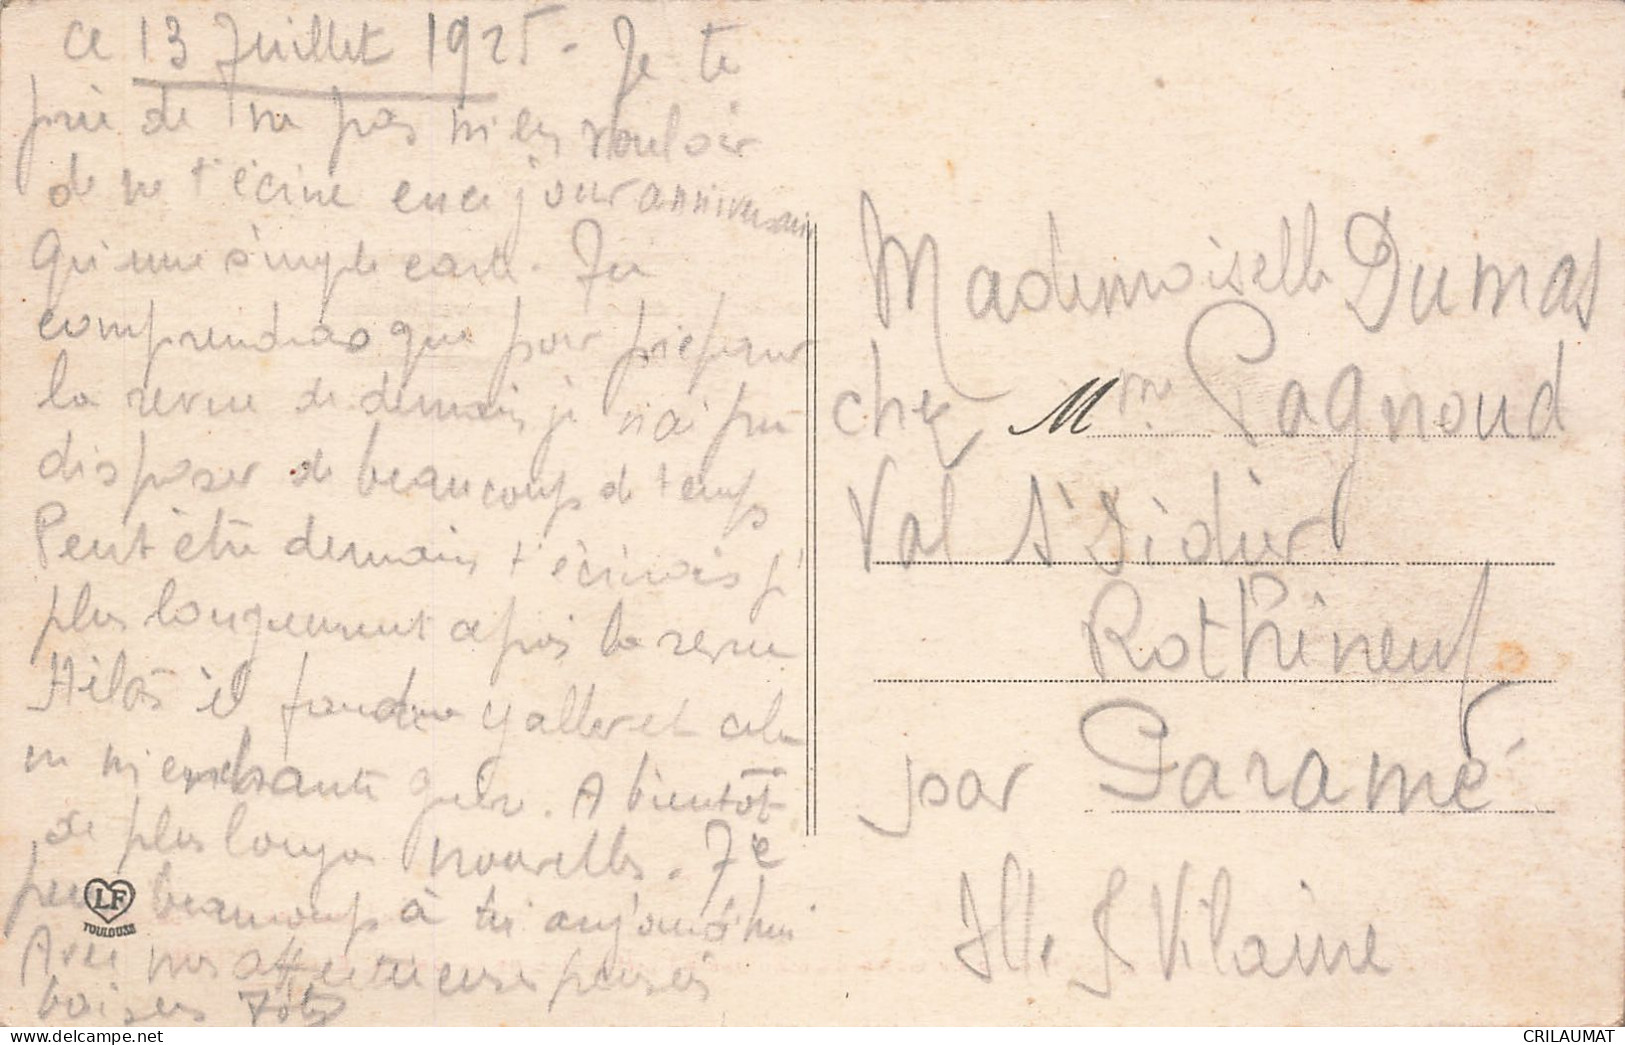 ce 13 Juillet 1925 - Je te
prie de ne pas m'en vouloir
de ne t'écrire en ce jour anniversaire
Qu'une simple carte. Tu
comprendras que pour préparer
la revue de demain je n'ai pu
disposer de beaucoup de temps
Peut être demain t'écrirais j'
plus longuement après la revue
Hélas il faudra y aller et cela
ne m'enchante guère. A bientôt
de plus longues nouvelles. Je
pense beaucoup à toi aujourd'hui
Avec mes affectueuses pensées
baisers
LF
TOULOUSE
Mademoiselle Dumas
chez Mme Pagnoud
Val St Didier
Rothéneuf
par Paramé
Ille & Vilaine
CRILAUMAT